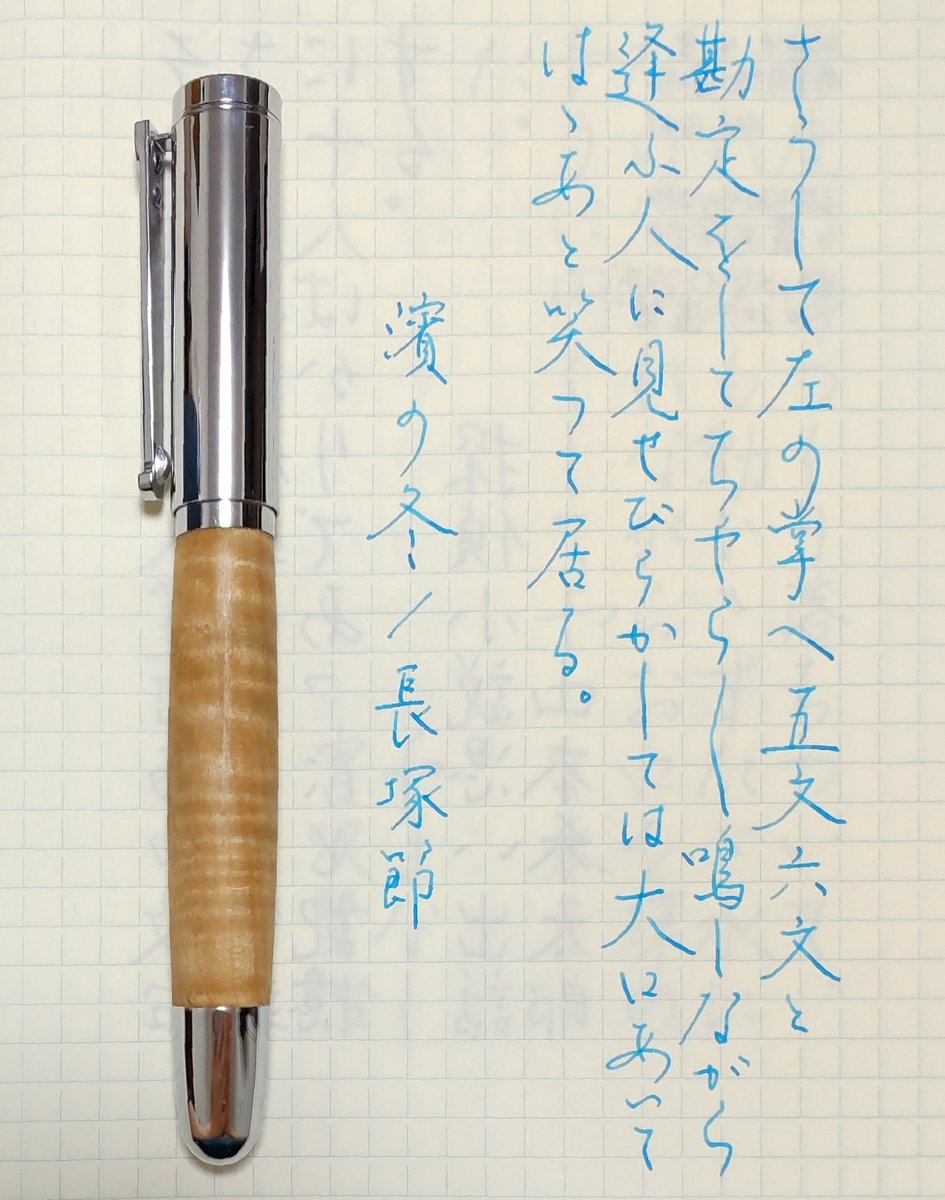 さうして左の掌へ五文六文と
勘定をしてちやら〳〵鳴しながら
逢ふ人に見せびらかしては大口あいて
はゝあと笑つて居る。
濱の冬/長塚節